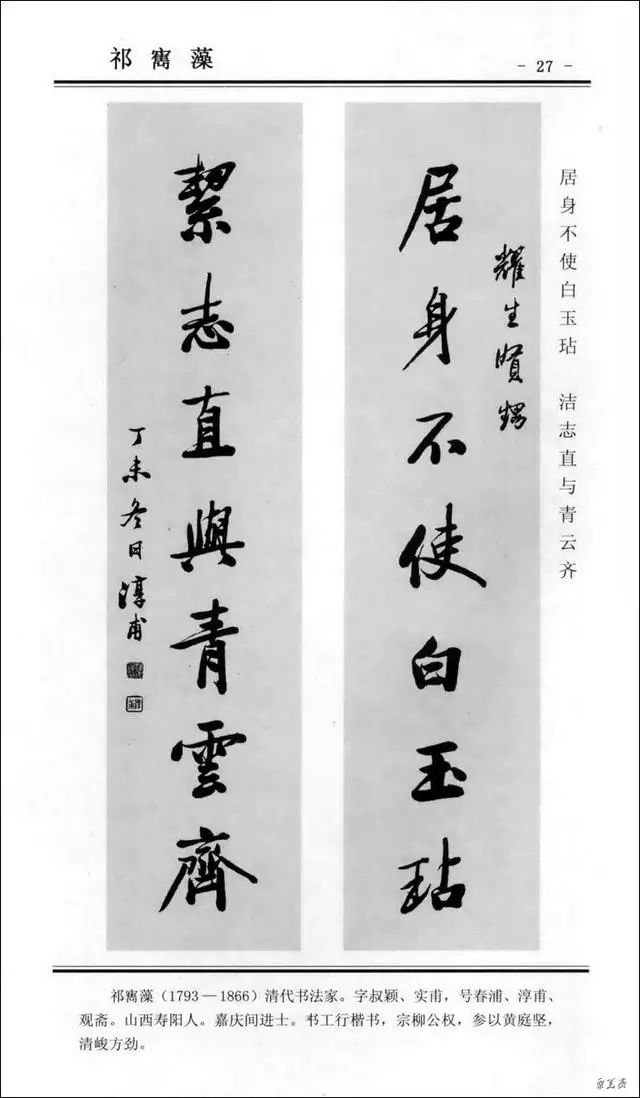 祁寯藻
- 27 -
居身不使白玉玷　洁志直与青云齐
耀生贤甥
居身不使白玉玷
絜志直與青雲齊
丁未冬日淳甫
祁寯藻（1793—1866）清代书法家。字叔颖、实甫，号春浦、淳甫、
观斋。山西寿阳人。嘉庆间进士。书工行楷书，宗柳公权，参以黄庭坚，
清峻方劲。